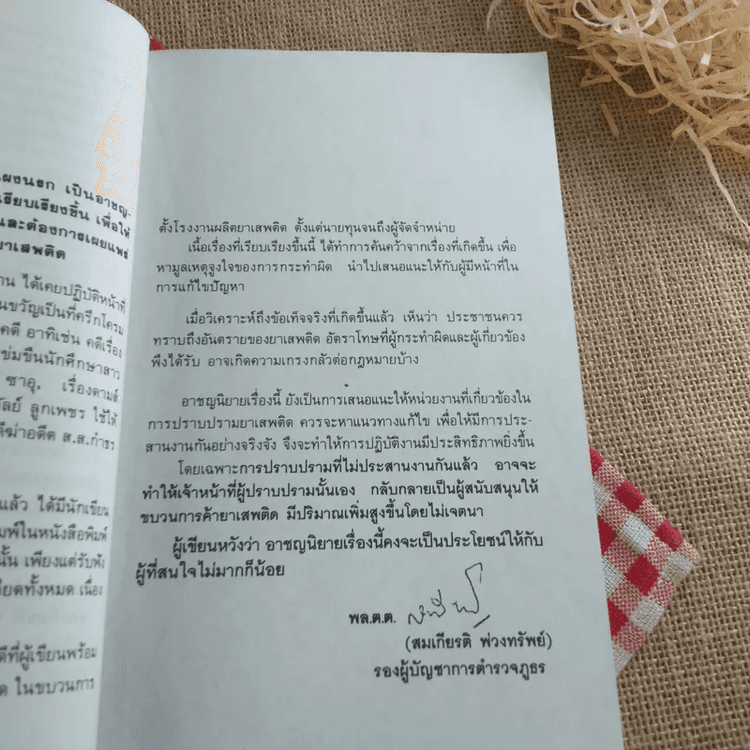 เป็นอาชญ-
เรียบเรียงขึ้น เพื่อให้
และต้องการเผยแพร่
ยาเสพติด
ได้เคยปฏิบัติหน้าที่
ขวัญเป็นที่ครึกโครม
คดี อาทิเช่น คดีเรื่อง
ข่มขืนนักศึกษาสาว
ซาอุ, เรื่องดามส์
ลูกเพชร ใช้ให้
อดีต ส.ส.กำธร
แล้ว ได้มีนักเขียน
พ์ในหนังสือพิมพ์
นั้น เพียงแต่รับฟัง
เอียดทั้งหมด เนื่อง
ที่ผู้เขียนพร้อม
ในขบวนการ
ตั้งโรงงานผลิตยาเสพติด ตั้งแต่นายทุนจนถึงผู้จัดจำหน่าย
เนื้อเรื่องที่เรียบเรียงขึ้นนี้ ได้ทำการค้นคว้าจากเรื่องที่เกิดขึ้น เพื่อ
หามูลเหตุจูงใจของการกระทำผิด นำไปเสนอแนะให้กับผู้มีหน้าที่ใน
การแก้ไขปัญหา
เมื่อวิเคราะห์ถึงข้อเท็จจริงที่เกิดขึ้นแล้ว เห็นว่า ประชาชนควร
ทราบถึงอันตรายของยาเสพติด อัตราโทษที่ผู้กระทำผิดและผู้เกี่ยวข้อง
พึงได้รับ อาจเกิดความเกรงกลัวต่อกฎหมายบ้าง
อาชญนิยายเรื่องนี้ ยังเป็นการเสนอแนะให้หน่วยงานที่เกี่ยวข้องใน
การปราบปรามยาเสพติด ควรจะหาแนวทางแก้ไข เพื่อให้มีการประ-
สานงานกันอย่างจริงจัง จึงจะทำให้การปฏิบัติงานมีประสิทธิภาพยิ่งขึ้น
โดยเฉพาะการปราบปรามที่ไม่ประสานงานกันแล้ว อาจจะ
ทำให้เจ้าหน้าที่ผู้ปราบปรามนั้นเอง กลับกลายเป็นผู้สนับสนุนให้
ขบวนการค้ายาเสพติด มีปริมาณเพิ่มสูงขึ้นโดยไม่เจตนา
ผู้เขียนหวังว่า อาชญนิยายเรื่องนี้คงจะเป็นประโยชน์ให้กับ
ผู้ที่สนใจไม่มากก็น้อย
พล.ต.ต.
(สมเกียรติ พ่วงทรัพย์)
รองผู้บัญชาการตำรวจภูธร